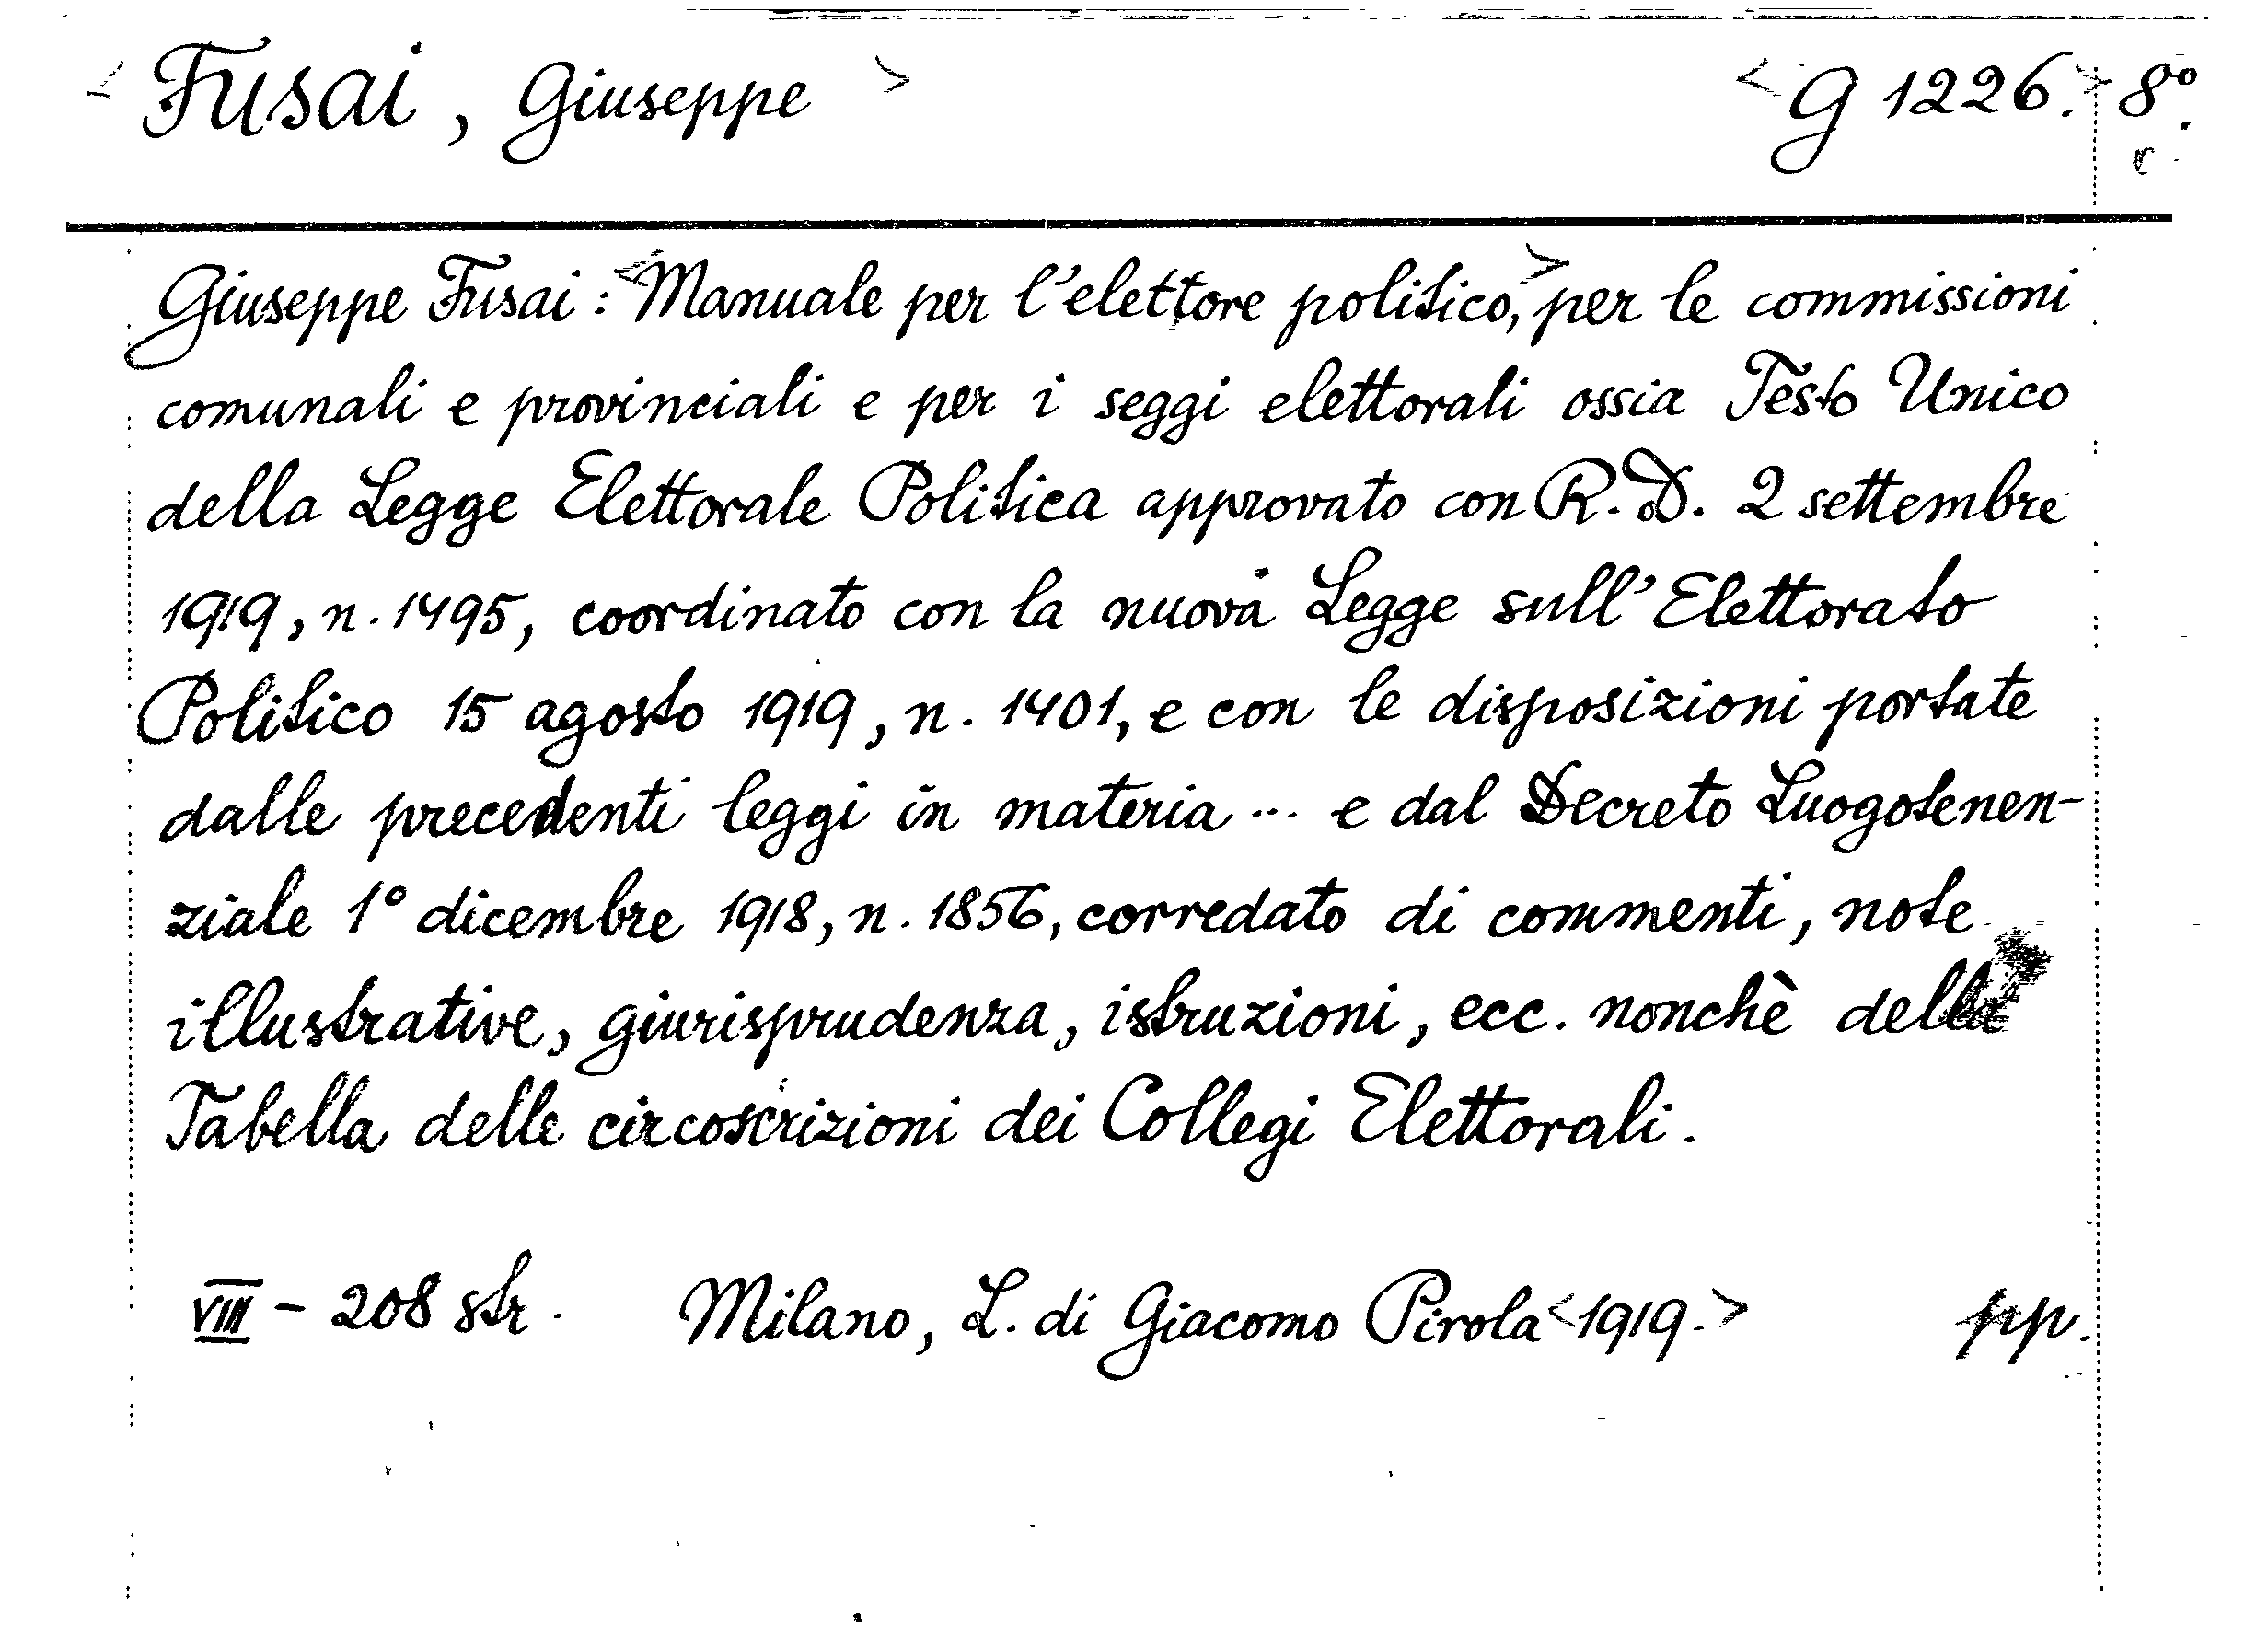 < Fusai, Giuseppe > < G 1226. > 8º.
r
Giuseppe Fusai: <Manuale per l'elettore politico,> per le commissioni
comunali e provinciali e per i seggi elettorali ossia Testo Unico
della Legge Elettorale Politica approvato con R. D. 2 settembre
1919, n. 1495, coordinato con la nuova Legge sull'Elettorato
Politico 15 agosto 1919, n. 1401, e con le disposizioni portate
dalle precedenti leggi in materia ... e dal Decreto Luogotenen-
ziale 1º dicembre 1918, n. 1856, corredato di commenti, note
illustrative, giurisprudenza, istruzioni, ecc. nonchè della
Tabella delle circoscrizioni dei Collegi Elettorali.
VIII - 208 str. Milano, L. di Giacomo Pirola <1919.> pp.